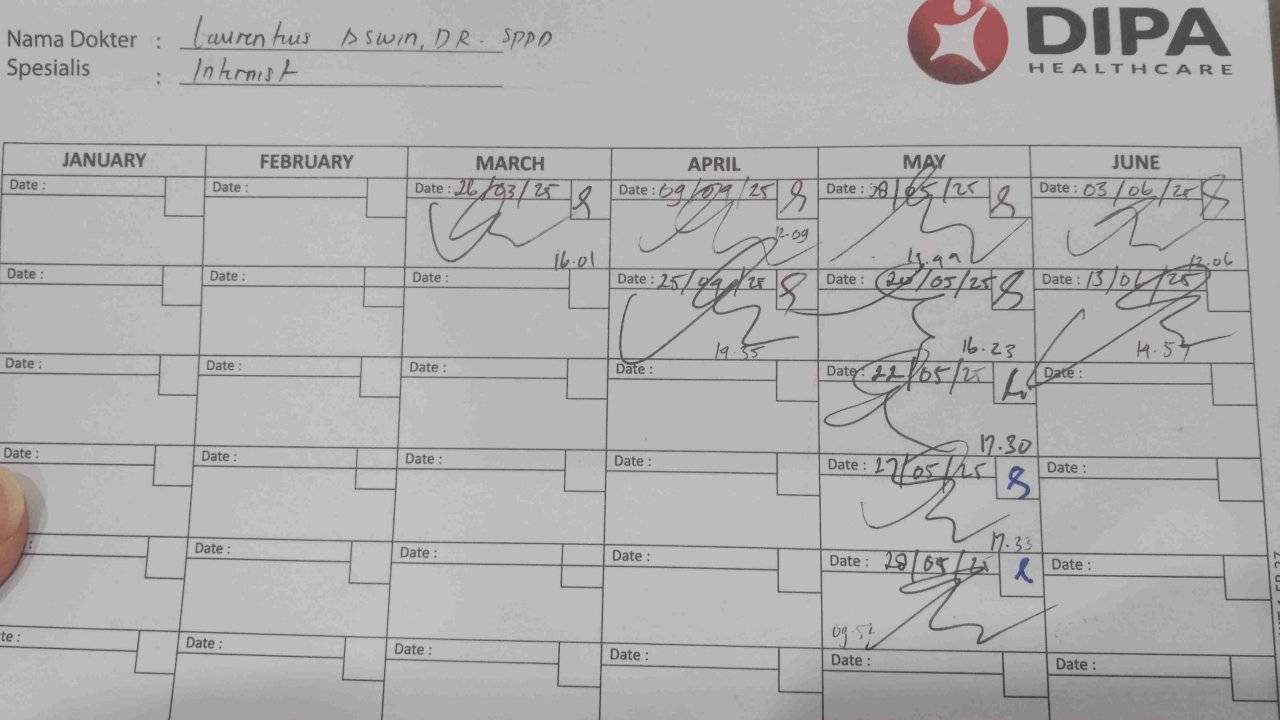 Nama Dokter : Laurentius Aswin, DR. SPPD
Spesialis : Internist
DIPA
HEALTHCARE
JANUARY FEBRUARY MARCH APRIL MAY JUNE
Date : Date : Date : 26/03/25 Date : 09/04/25 Date : /05/25 Date : 03/06/25
16.01 12.09 12.06
Date : Date : Date : Date : 25/04/25 Date : /05/25 Date : 13/06/25
19.35 16.23 14.57
Date : Date : Date : Date : Date : 22/05/25 Date :
17.30
Date : Date : Date : Date : Date : 27/05/25 Date :
17.33
Date : Date : Date : Date : 28/05/25 Date :
09.52
Date : Date : Date : Date : Date :